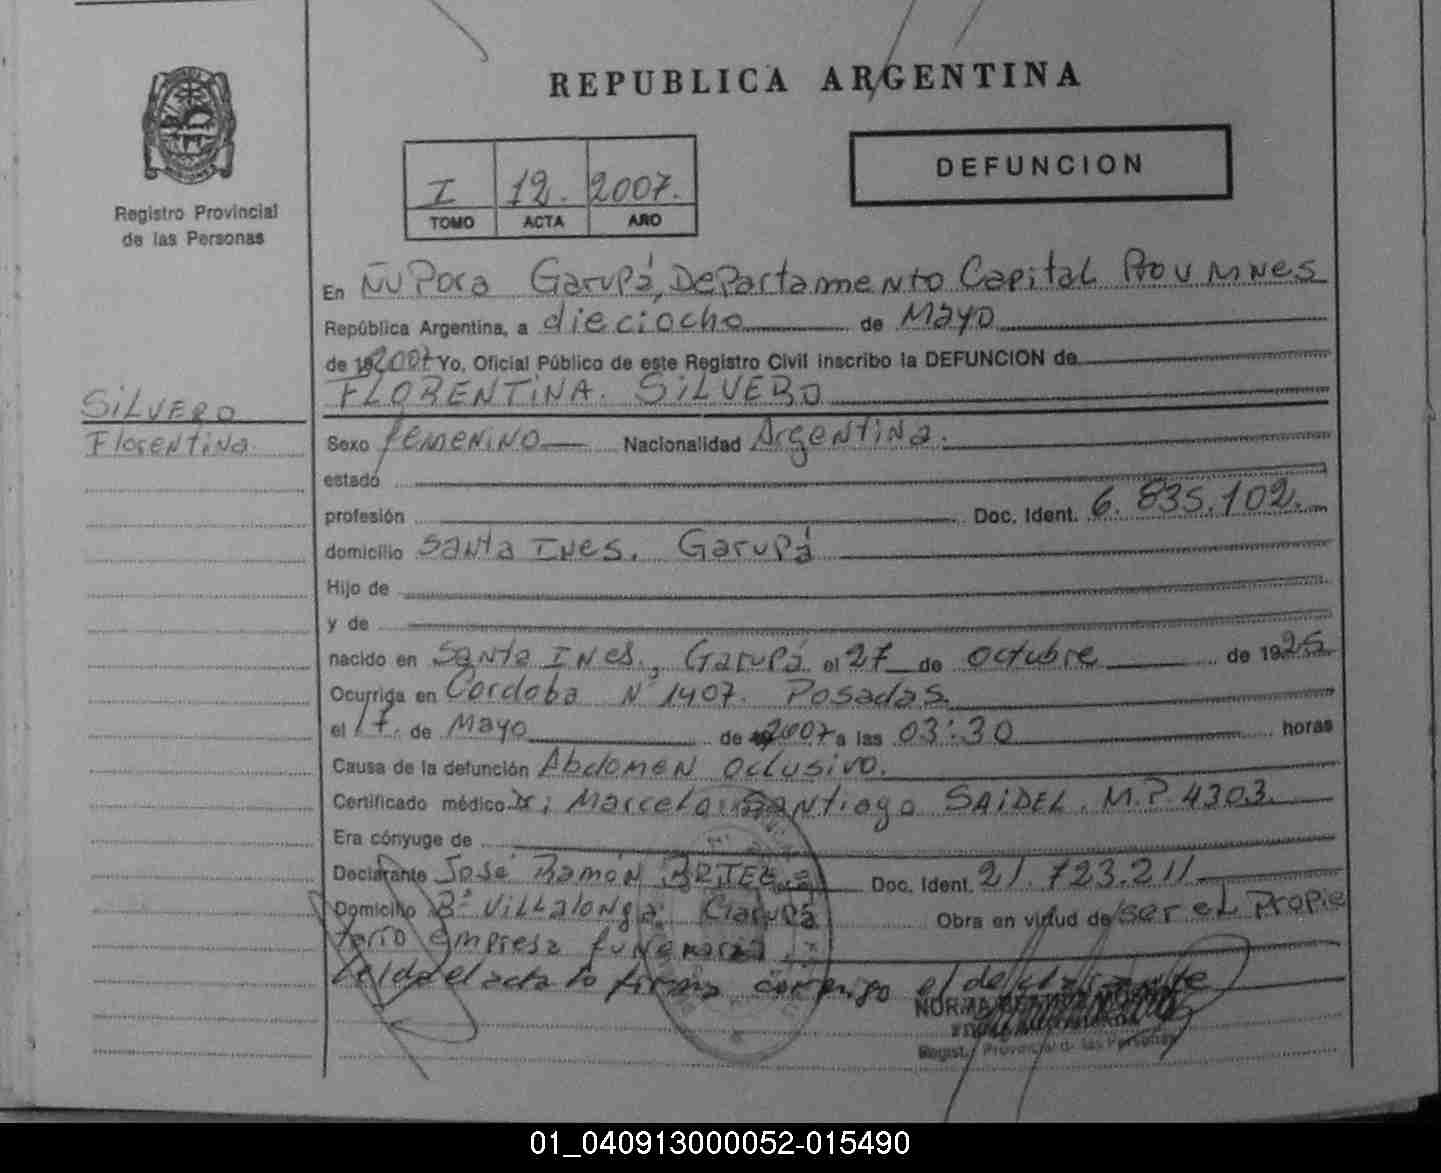 REPUBLICA ARGENTINA
Registro Provincial
de las Personas
I 12. 2007.
TOMO ACTA AÑO
DEFUNCION
En Ñu Pora Garupá, Departamento Capital Prov Mnes
República Argentina, a dieciocho de Mayo
de 192007 Yo, Oficial Público de este Registro Civil inscribo la DEFUNCION de
FLORENTINA. SILVERO
SILVERO
Florentina.
Sexo femenino Nacionalidad Argentina.
estado
profesión Doc. Ident. 6.835.102.
domicilio Santa Ines. Garupá
Hijo de
y de
nacido en Santa Ines, Garupá el 27 de octubre de 1925
Ocurrida en Cordoba N° 1407. Posadas.
el 17. de Mayo de 2007 a las 03:30 horas
Causa de la defunción Abdomen oclusivo.
Certificado médico Dr: Marcelo Santiago SAIDEL. M.P. 4303.
Era cónyuge de
Declarante José Ramón BRITEZ Doc. Ident. 21.723.211
Domicilio B° Villalonga Garupá Obra en virtud de ser el Propie
tario empresa funeraria
Leida el acta la firma conmigo el declarante
NORMA
Regist. Provincial de las Personas
01_040913000052-015490